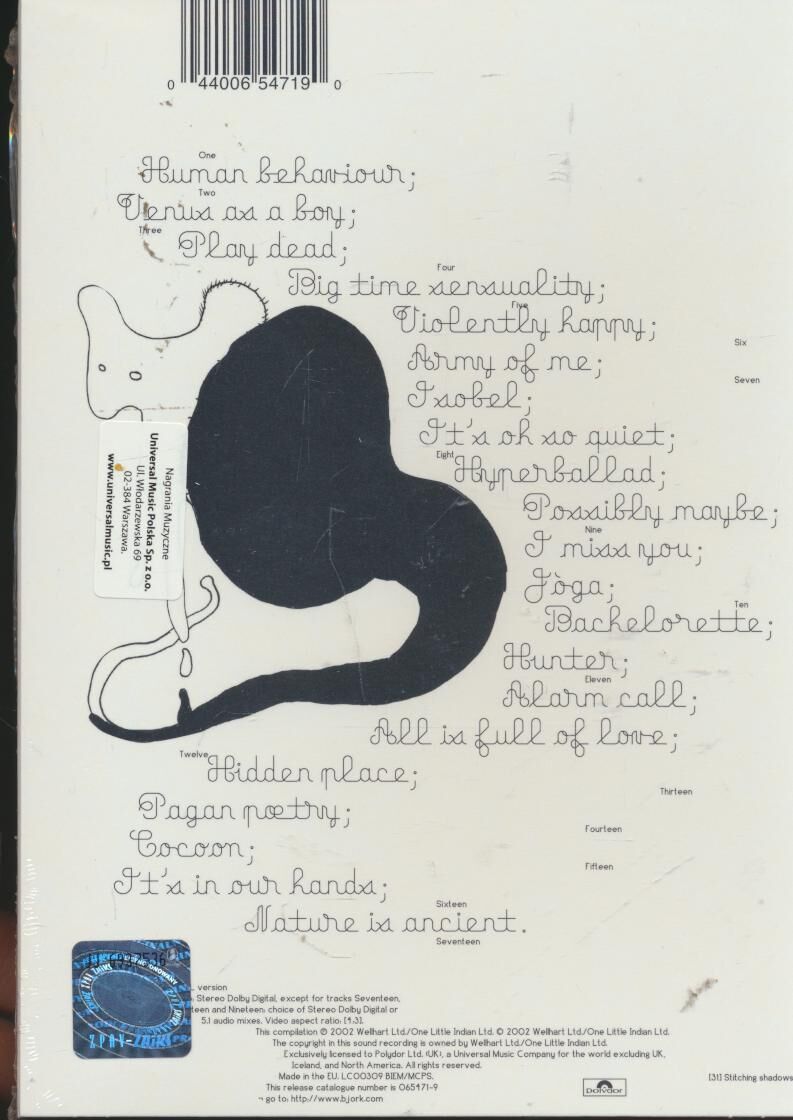 0 44006 54719 0
One
Human behaviour;
Two
Venus as a boy;
Three
Play dead;
Four
Big time sensuality;
Five
Violently happy;
Six
Army of me;
Seven
Isobel;
It's oh so quiet;
Eight
Hyperballad;
Possibly maybe;
Nine
I miss you;
Jòga;
Ten
Bachelorette;
Hunter;
Eleven
Alarm call;
All is full of love;
Twelve
Hidden place;
Thirteen
Pagan poetry;
Fourteen
Cocoon;
Fifteen
It's in our hands;
Sixteen
Nature is ancient.
Seventeen
Nagrania Muzyczne
Universal Music Polska Sp. z o.o.
Ul. Włodarzewska 69
02-384 Warszawa.
www.universalmusic.pl
version
Stereo Dolby Digital, except for tracks Seventeen,
teen and Nineteen: choice of Stereo Dolby Digital or
5.1 audio mixes. Video aspect ratio: [4.3].
This compilation ℗ 2002 Wellhart Ltd./One Little Indian Ltd. © 2002 Wellhart Ltd./One Little Indian Ltd.
The copyright in this sound recording is owned by Wellhart Ltd./One Little Indian Ltd.
Exclusively licensed to Polydor Ltd. (UK), a Universal Music Company for the world excluding UK,
Iceland, and North America. All rights reserved.
Made in the EU. LC00309 BIEM/MCPS.
This release catalogue number is 065471-9
go to: http://www.bjork.com
Polydor
[31] Stitching shadows
ZPAV-ZAIKS